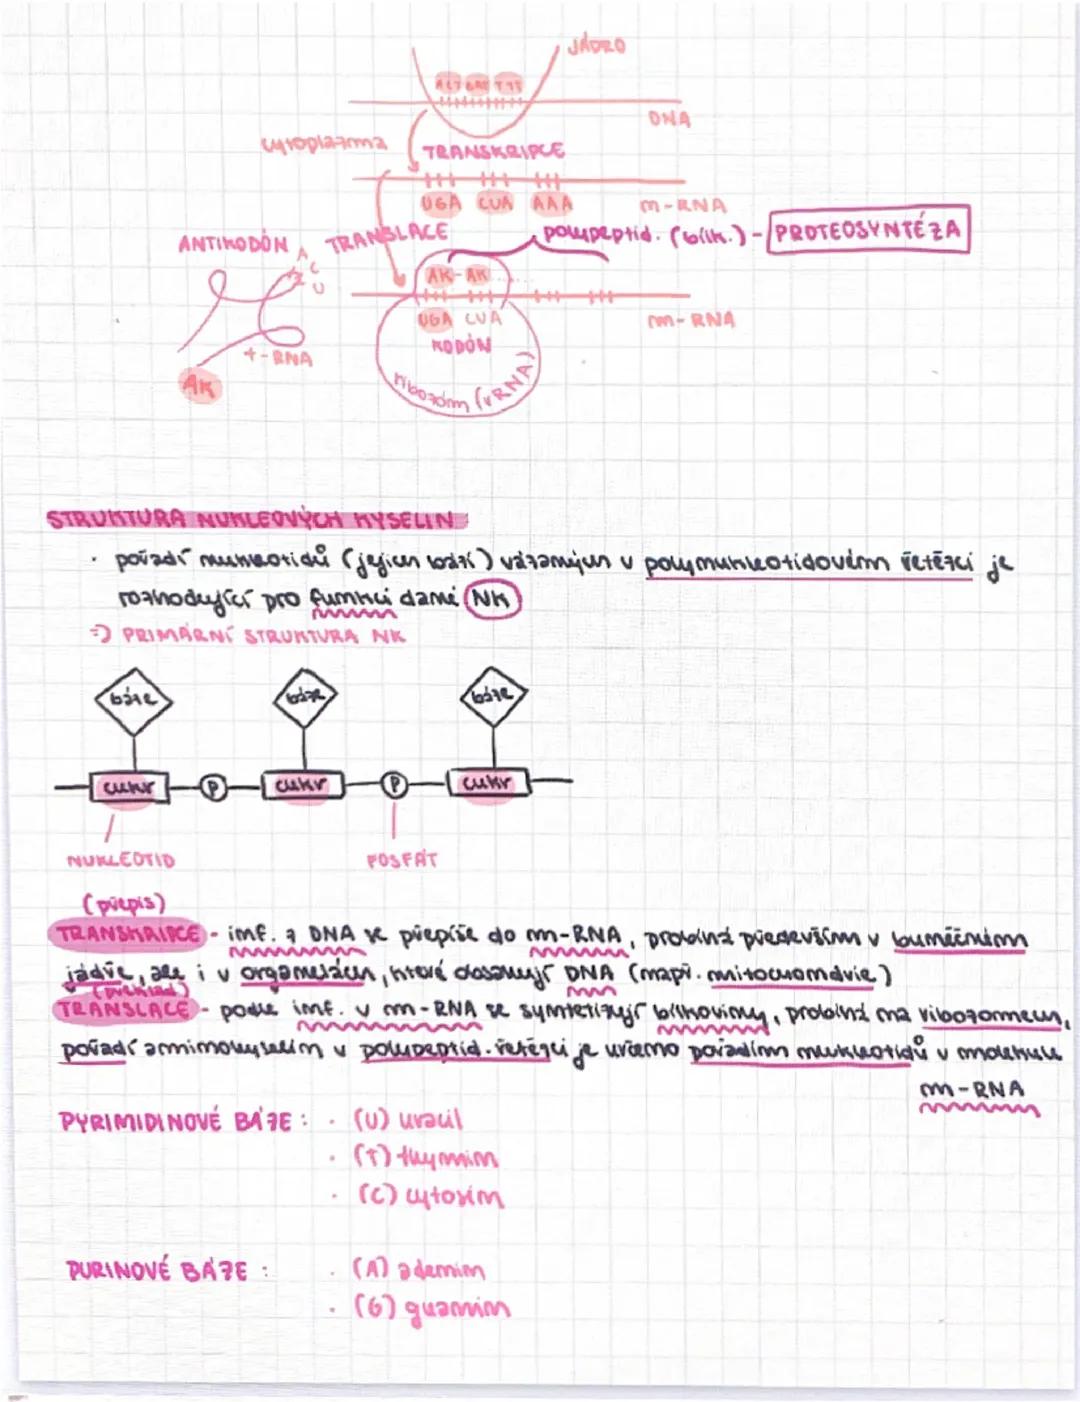 JÁDRO
ACT GAT TTT
DNA
cytoplazma
TRANSKRIPCE
UGA CUA AAA
m-RNA
ANTIKODÓN
TRANSLACE
polypeptid. (bílk.) - PROTEOSYNTÉZA
A
C
U
AK-AK......
UGA CUA
m-RNA
KODÓN
t-RNA
AK
ribozóm (rRNA)
STRUKTURA NUKLEOVÝCH KYSELIN
· pořadí nukleotidů (jejich bází) vázaných v polynukleotidovém řetězci je
rozhodující pro funkci dané NK
=> PRIMÁRNÍ STRUKTURA NK
báze báze báze
cukr P cukr P cukr
NUKLEOTID FOSFÁT
(přepis)
TRANSKRIPCE - inf. z DNA se přepíše do m-RNA, probíhá především v buněčném
jádře, ale i v organelách, které obsahují DNA (např. mitochondrie)
(překlad)
TRANSLACE - podle inf. v m-RNA se syntetizují bílkoviny, probíhá na ribozomech,
pořadí aminokyselin v polypeptid. řetězci je určeno pořadím nukleotidů v molekule
m-RNA
PYRIMIDINOVÉ BÁZE : · (U) uracil
· (T) thymin
· (C) cytosin
PURINOVÉ BÁZE : · (A) adenin
· (G) guanin